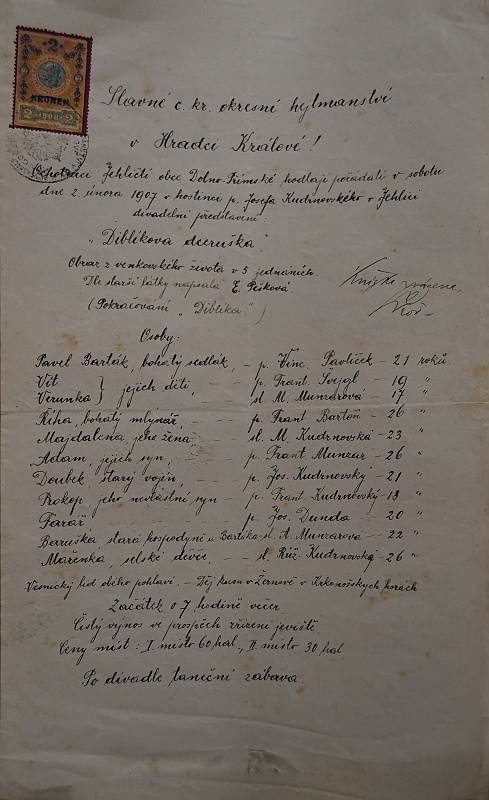 2
KRONEN
2 1898 2
Slavné c. kr. okresní hejtmanství
v Hradci Králové!
Ochotníci Jehličtí obce Dolno-Přímské podlají pořádati v sobotu
dne 2. února 1907 v hostinci p. Josefa Kudrnovského v Jehlici
divadelní představení:
"Diblíkova dceruška"
Obraz z venkovského života v 5 jednáních.
Dle starší látky napsala E. Pešková.
(Pokračování "Diblíka")
Osoby:
Pavel Barták, bohatý sedlák, - p. Vinc. Pavlíček - 21 roků
Vít
Verunka } jejich děti, - p. Frant. Švejgl - 19 "
sl. M. Munzarova - 17 "
Říha, bohatý mlynář, - p. Frant Bartoň - 26 "
Majdalena, jeho žena, - sl. M. Kudrnovská - 23 "
Adam, jejich syn, - p. Frant Munzar - 26 "
Doubek, starý vojín, - p. Jos. Kudrnovský - 21 "
Prokop, jeho nevlastní syn - p. Frant. Kudrnovský - 18 "
Farář - p. Jos. Dunda - 20 "
Baruška stará hospodyně u Bartáka - sl. A. Munzarova - 22 "
Mařenka, selské děvče, - sl. Růž. Kudrnovská - 26 "
Vesnický lid obého pohlaví. - Děj kusu v Žernově v Krkonošských horách
Začátek o 7. hodině večer.
Čistý výnos ve prospěch zřízení jeviště.
Ceny míst: I. místo 60 hal., II. místo 30 hal
Po divadle taneční zábava.